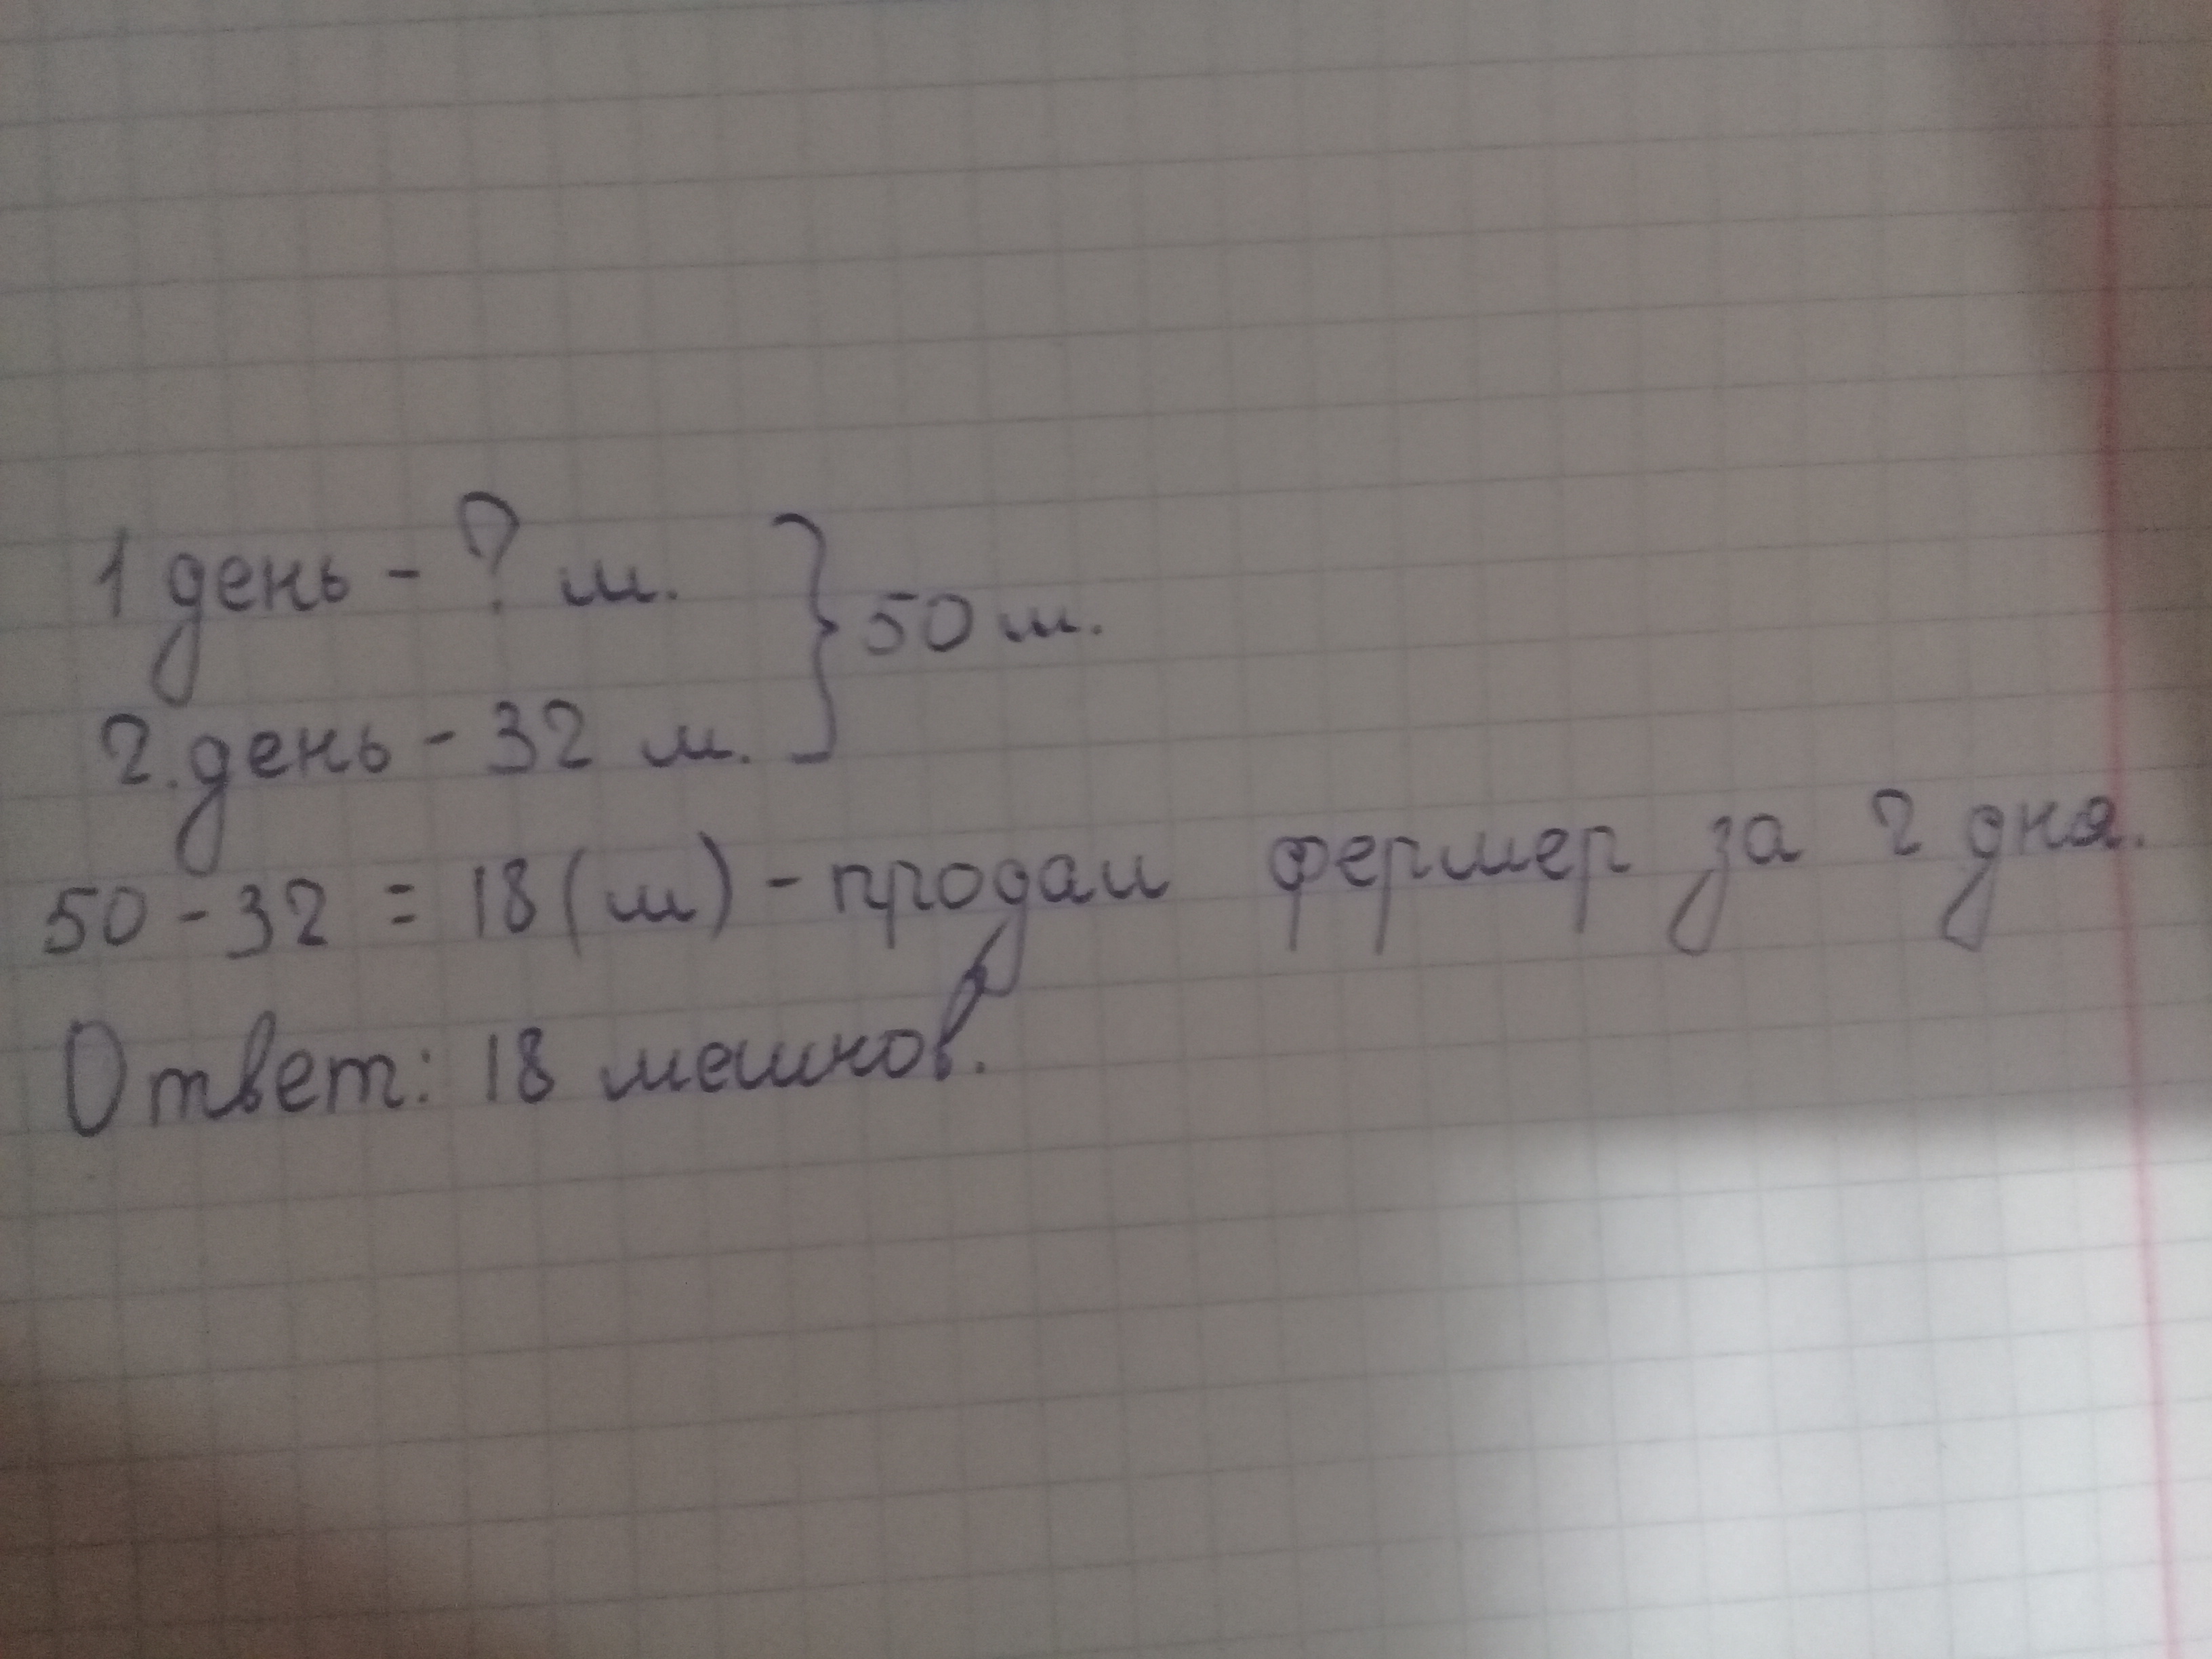 1 день - ? м.
50 м.
2. день - 32 м.
50 - 32 = 18 (м) - продал фермер за 2 дня.
Ответ: 18 мешков.